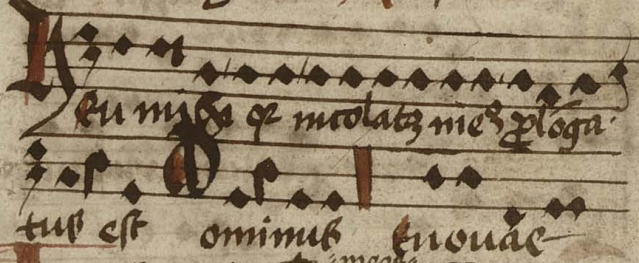 Heu mich qꝛ incolatꝫ meꝰ ꝓlōga
tus est Dominus Euouae